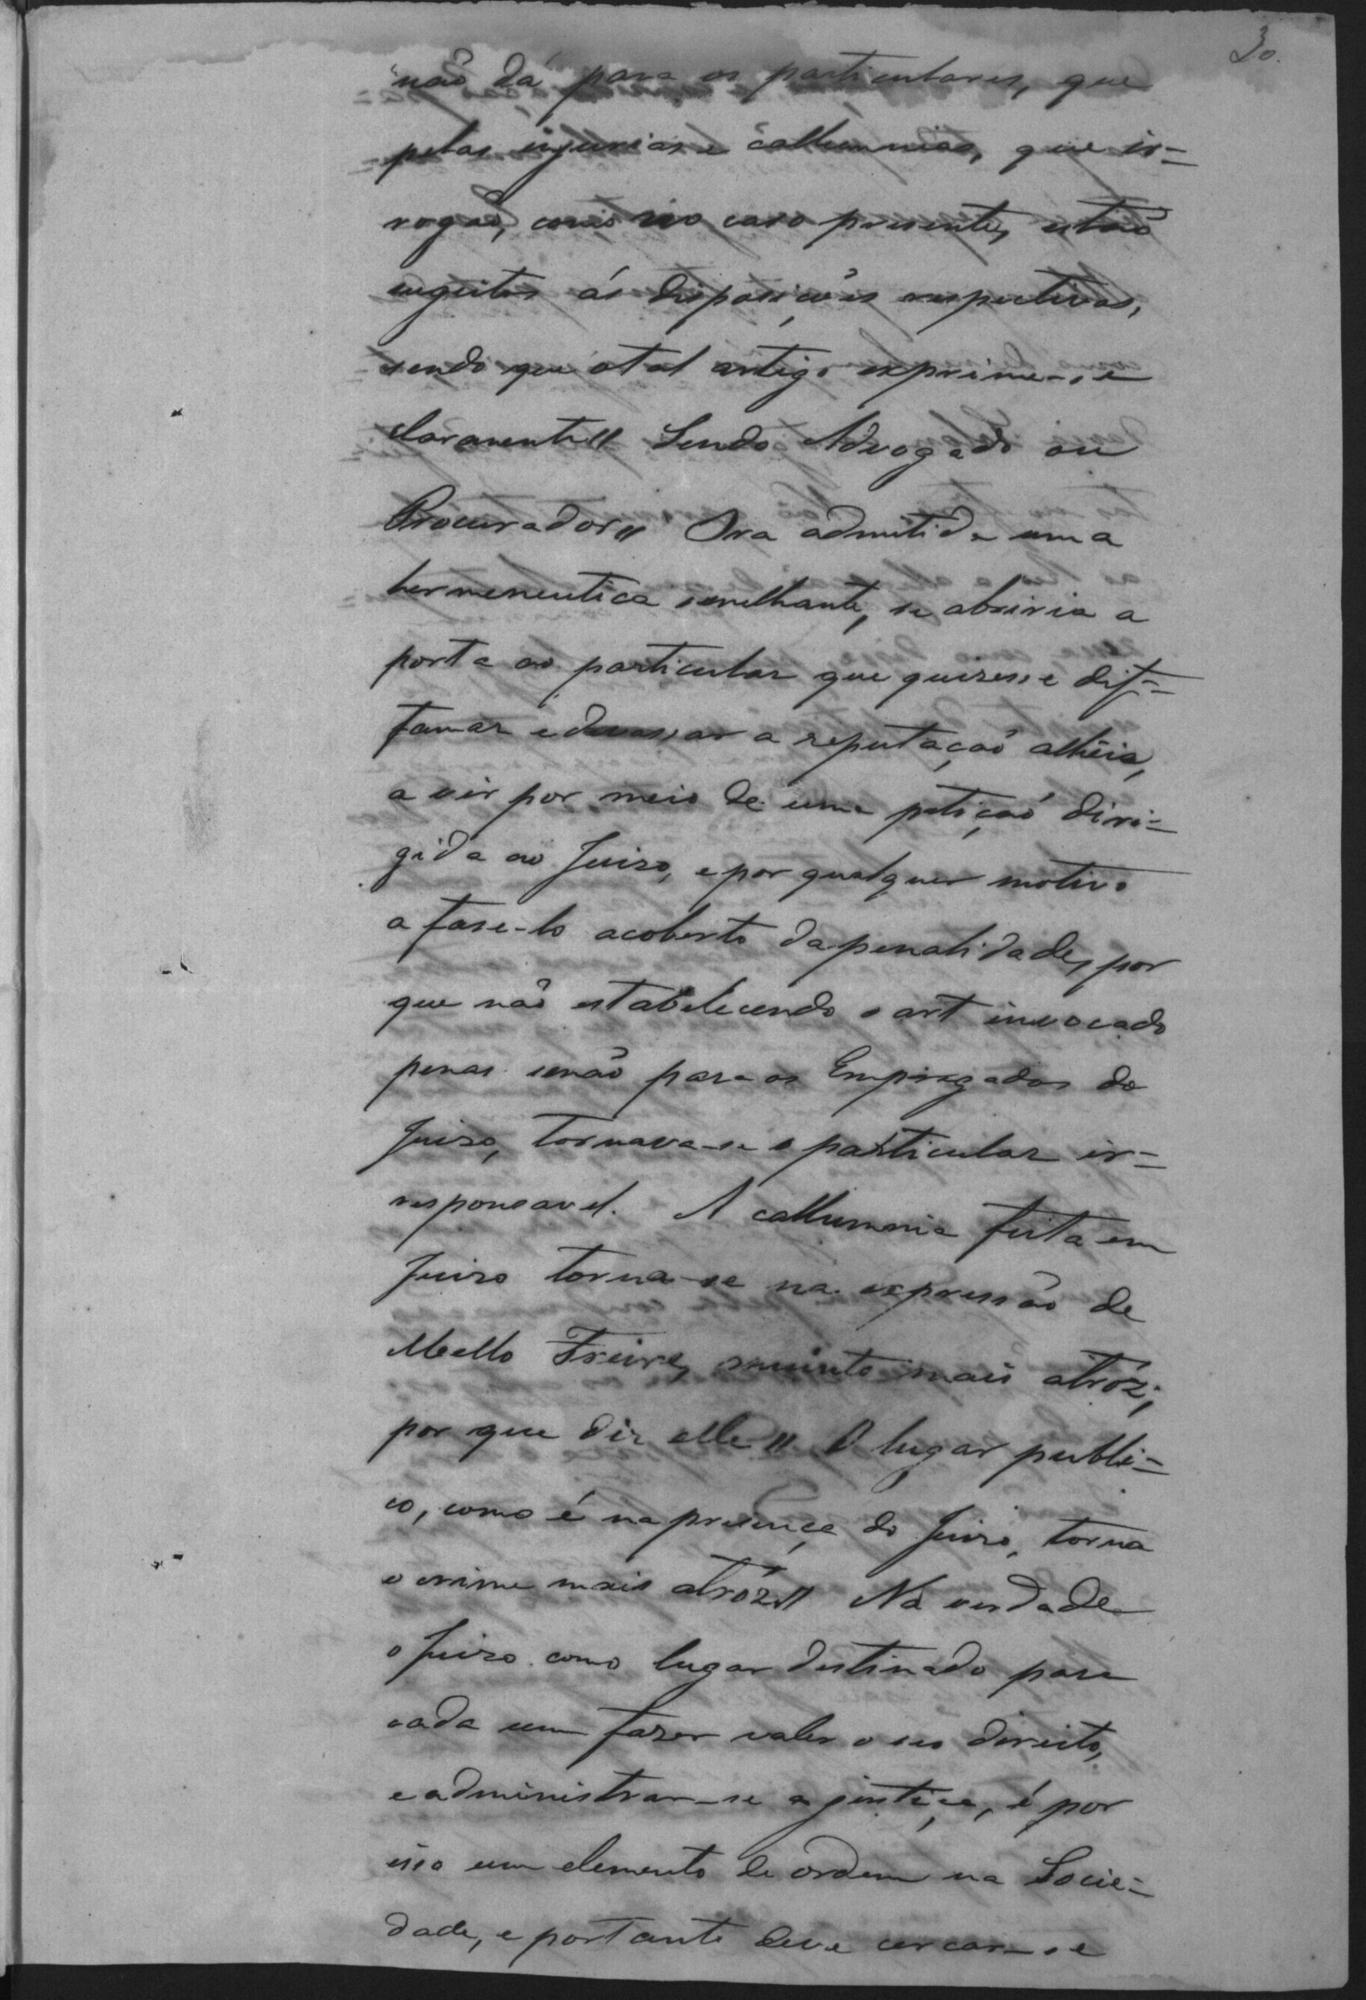 30.
não dá para os particulares, que
pelas injurias e callumnias, que ir=
rogaõ, como no caso presente, estaõ
sugeitos ás disposições respectivas,
sendo que o tal artigo exprime-se
claramente〃 Sendo Advogado ou
Procurador〃 Ora admitida uma
hermeneutica semelhante, se abriria a
porta ao particular que quizesse dif=
famar e devassar a reputaçaõ alheia,
a vir por meio de uma petiçaõ diri=
gida ao Juizo, e por qualquer motivo
a fase-lo acoberto da penalidade, por
que não estabelecendo o art invocado
penas senão para os Empregados do
Juizo, tornava-se o particular ir=
responsavel. A callumnia feita em
Juizo torna-se na expressão de
Mello Freire, muinto mais atróz;
por que diz elle〃 O lugar publi=
co, como é na presença do Juizo, torna
o crime mais atróz〃 Na verdade
o Juizo como lugar destinado para
cada um fazer valer o seo direito,
e administrar-se a justiça, é por
isso um elemento de ordem na Socie=
dade, e portanto deve cercar-se